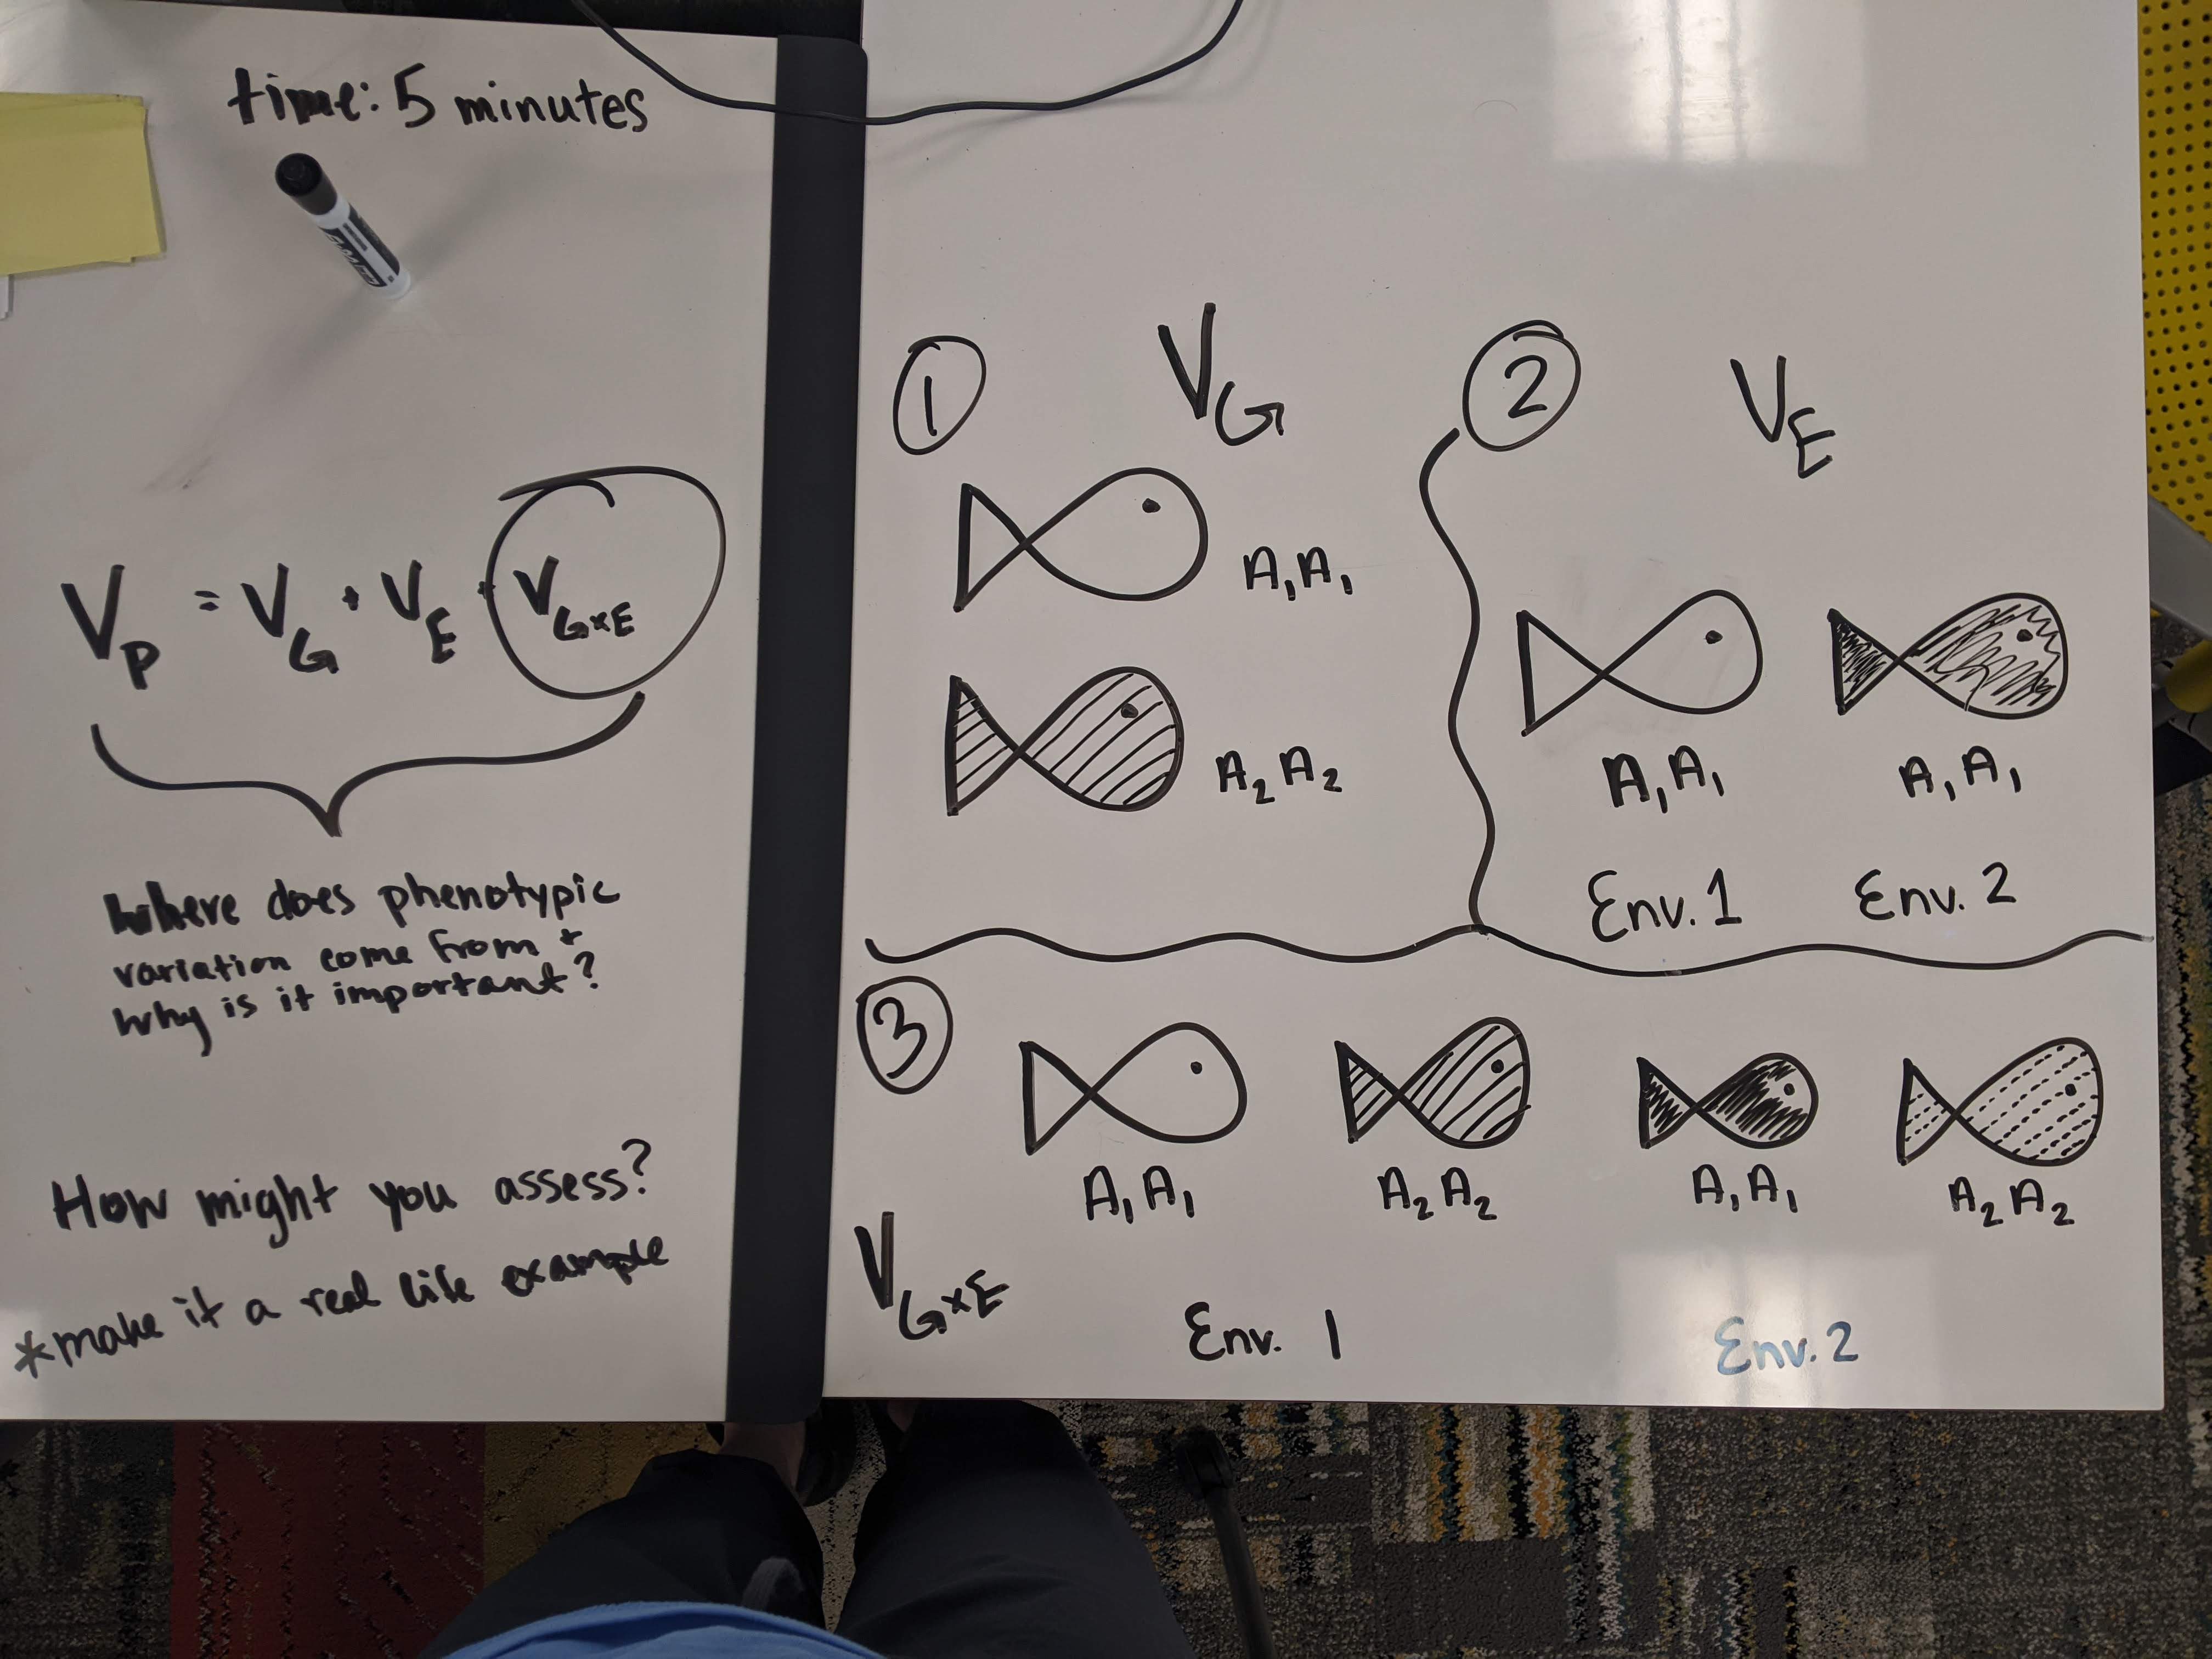 time: 5 minutes
V_P = V_G + V_E + V_G×E
Where does phenotypic
variation come from +
why is it important?
How might you assess?
*make it a real life example
1 V_G
A₁A₁
A₂A₂
2 V_E
A₁A₁ A₁A₁
Env. 1 Env. 2
3
A₁A₁ A₂A₂ A₁A₁ A₂A₂
V_G×E
Env. 1 Env. 2